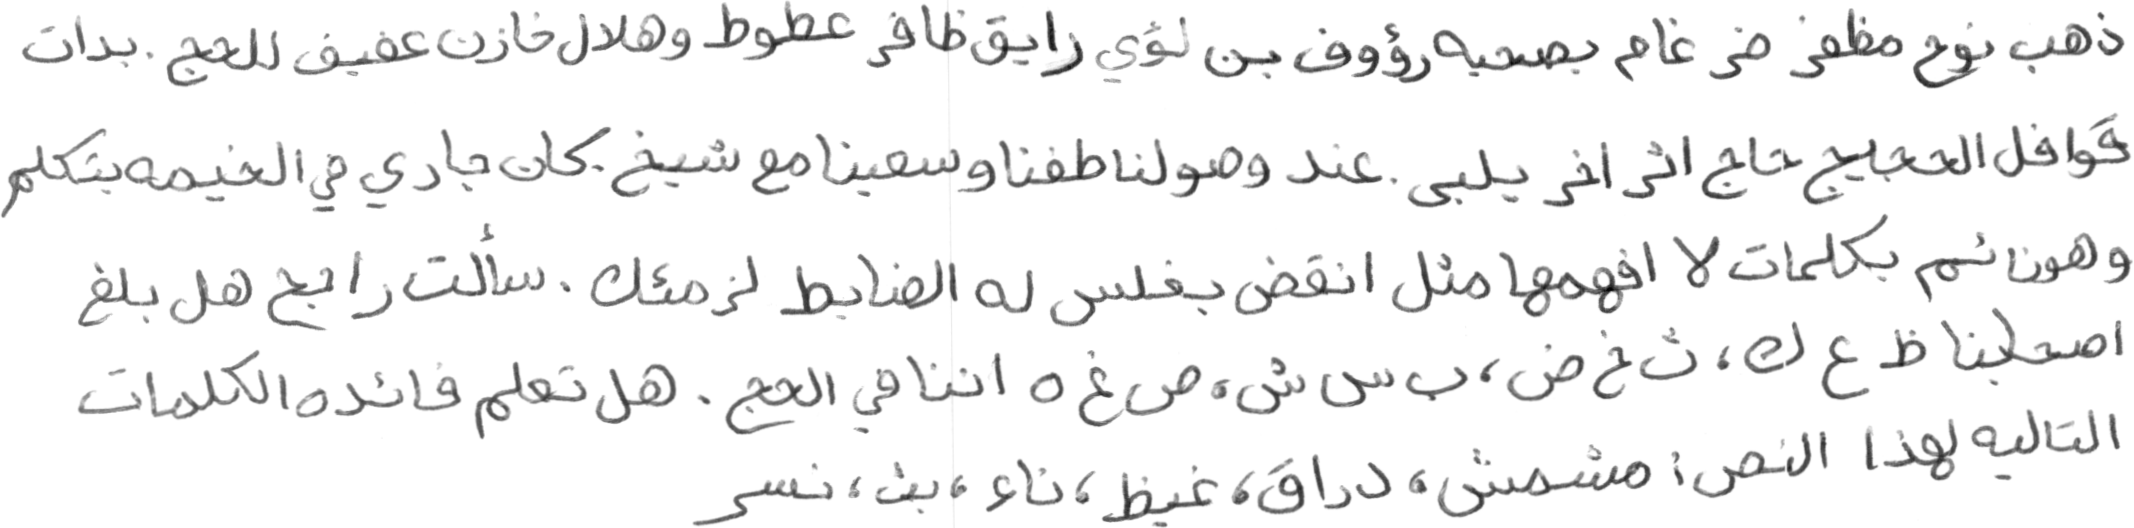 ذهب نوح مظفر ضرغام بصحبه رؤوف بن لؤي رايق ظافر عطوط وهلال خازن عفيف للحج . بدات
قوافل الحجيج حاج اثر اخر يلبى . عند وصولنا طفنا وسعينا مع شيخ . كان جاري في الخيمه يتكلم
وهو نائم بكلمات لا افهمها مثل انقض بغلس له الضابط لزمئك . سألت رابح هل بلغ
اصحابنا ظ ع ك ، ث خ ض ، ب س ش ، ص غ ه اننا في الحج . هل تعلم فائده الكلمات
التاليه لهذا النص : مشمش ، دراق ، غيظ ، ناء ، بث ، نسر